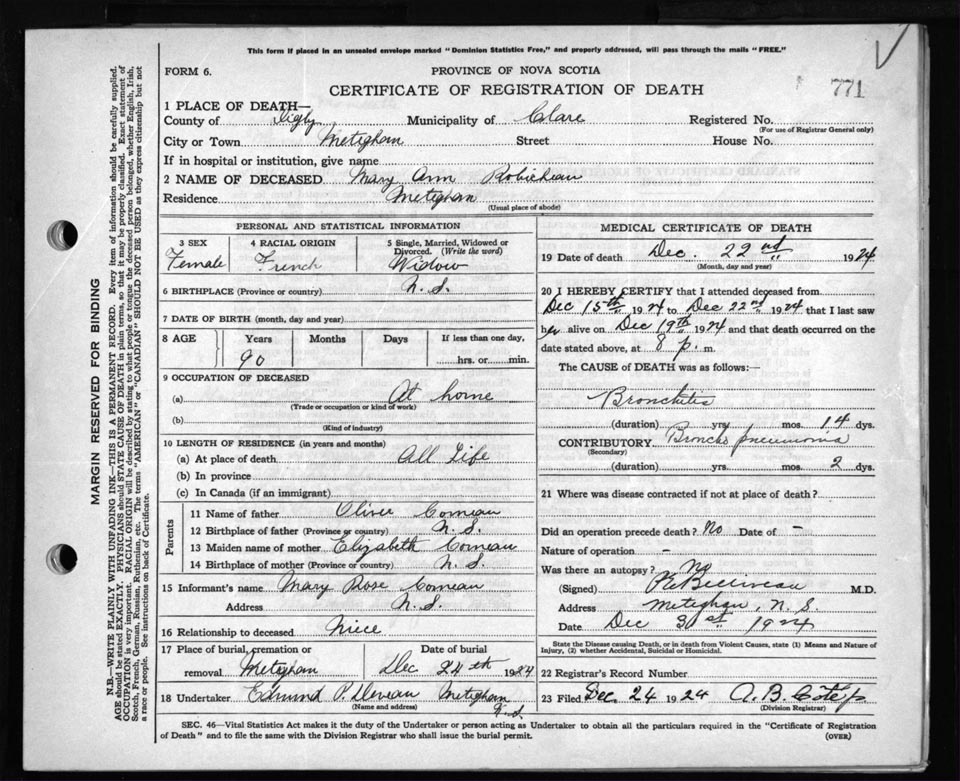 This form if placed in an unsealed envelope marked "Dominion Statistics Free," and properly addressed, will pass through the mails "FREE."
FORM 6.
PROVINCE OF NOVA SCOTIA
771
CERTIFICATE OF REGISTRATION OF DEATH
1 PLACE OF DEATH—
County of Digby Municipality of Clare Registered No.
(For use of Registrar General only)
City or Town Meteghan Street House No.
If in hospital or institution, give name
2 NAME OF DECEASED Mary Ann Robicheau
Residence Meteghan
(Usual place of abode)
PERSONAL AND STATISTICAL INFORMATION
3 SEX 4 RACIAL ORIGIN 5 Single, Married, Widowed or
Divorced. (Write the word)
Female French Widow
6 BIRTHPLACE (Province or country) N.S.
7 DATE OF BIRTH (month, day and year)
8 AGE Years Months Days If less than one day,
90 hrs. or min.
9 OCCUPATION OF DECEASED
(a) At home
(Trade or occupation or kind of work)
(b)
(Kind of industry)
10 LENGTH OF RESIDENCE (in years and months)
(a) At place of death All Life
(b) In province
(c) In Canada (if an immigrant)
Parents
11 Name of father Oliver Comeau
12 Birthplace of father (Province or country) N.S.
13 Maiden name of mother Elizabeth Comeau
14 Birthplace of mother (Province or country) N.S.
15 Informant's name Mary Rose Comeau
Address N.S.
16 Relationship to deceased Niece
17 Place of burial, cremation or Date of burial
removal Meteghan Dec 24th 1924
18 Undertaker Edmund P. Deveau Meteghan
N.S.
(Name and address)
MEDICAL CERTIFICATE OF DEATH
19 Date of death Dec. 22nd 1924
(Month, day and year)
20 I HEREBY CERTIFY that I attended deceased from
Dec 15th 1924 to Dec 22nd 1924 that I last saw
her alive on Dec 19th 1924 and that death occurred on the
date stated above, at 8 p. m.
The CAUSE of DEATH was as follows:—
Bronchitis
(duration) yrs. mos. 14 dys.
CONTRIBUTORY Broncho pneumonia
(Secondary)
(duration) yrs. mos. 2 dys.
21 Where was disease contracted if not at place of death?
Did an operation precede death? No Date of –
Nature of operation –
Was there an autopsy? No
(Signed) Belliveau M.D.
Address Meteghan, N.S.
Date Dec 30st 1924
State the Disease causing Death, or in death from Violent Causes, state (1) Means and Nature of
Injury, (2) whether Accidental, Suicidal or Homicidal.
22 Registrar's Record Number
23 Filed Dec. 24 1924 A. B.
(Division Registrar)
SEC. 46—Vital Statistics Act makes it the duty of the Undertaker or person acting as Undertaker to obtain all the particulars required in the "Certificate of Registration
of Death" and to file the same with the Division Registrar who shall issue the burial permit. (OVER)
MARGIN RESERVED FOR BINDING
N.B.—WRITE PLAINLY WITH UNFADING INK—THIS IS A PERMANENT RECORD. Every item of information should be carefully supplied.
AGE should be stated EXACTLY. PHYSICIANS should STATE CAUSE OF DEATH in plain terms, so that it may be properly classified. Exact statement of
OCCUPATION is very important. RACIAL ORIGIN will be described by stating to what people or tongue the deceased person belonged, whether English, Irish,
Scotch, French, German, Russian, Ruthenian, etc. The terms "AMERICAN" or "CANADIAN" SHOULD NOT BE USED as they express citizenship but not
a race or people. See instructions on back of Certificate.